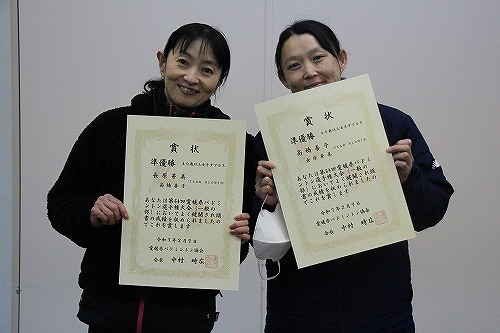 賞状
準優勝
40歳以上女子ダブルス
萩原茅美
(TEAM BLOWIN)
高橋喜子
あなたは第64回愛媛県バドミ
ントン選手権大会(一般の
部)においてよく健闘され頭
書の成績を収められましたの
でこれを賞します
令和7年2月9日
愛媛県バドミントン協会
会長 中村時広
賞状
準優勝
40歳以上女子ダブルス
高橋喜子
(TEAM BLOWIN)
あなたは第64回愛媛県バドミ
ントン選手権大会(一般の
部)においてよく健闘され頭
書の成績を収められましたの
でこれを賞します
愛媛県バドミントン協会
会長 中村時広